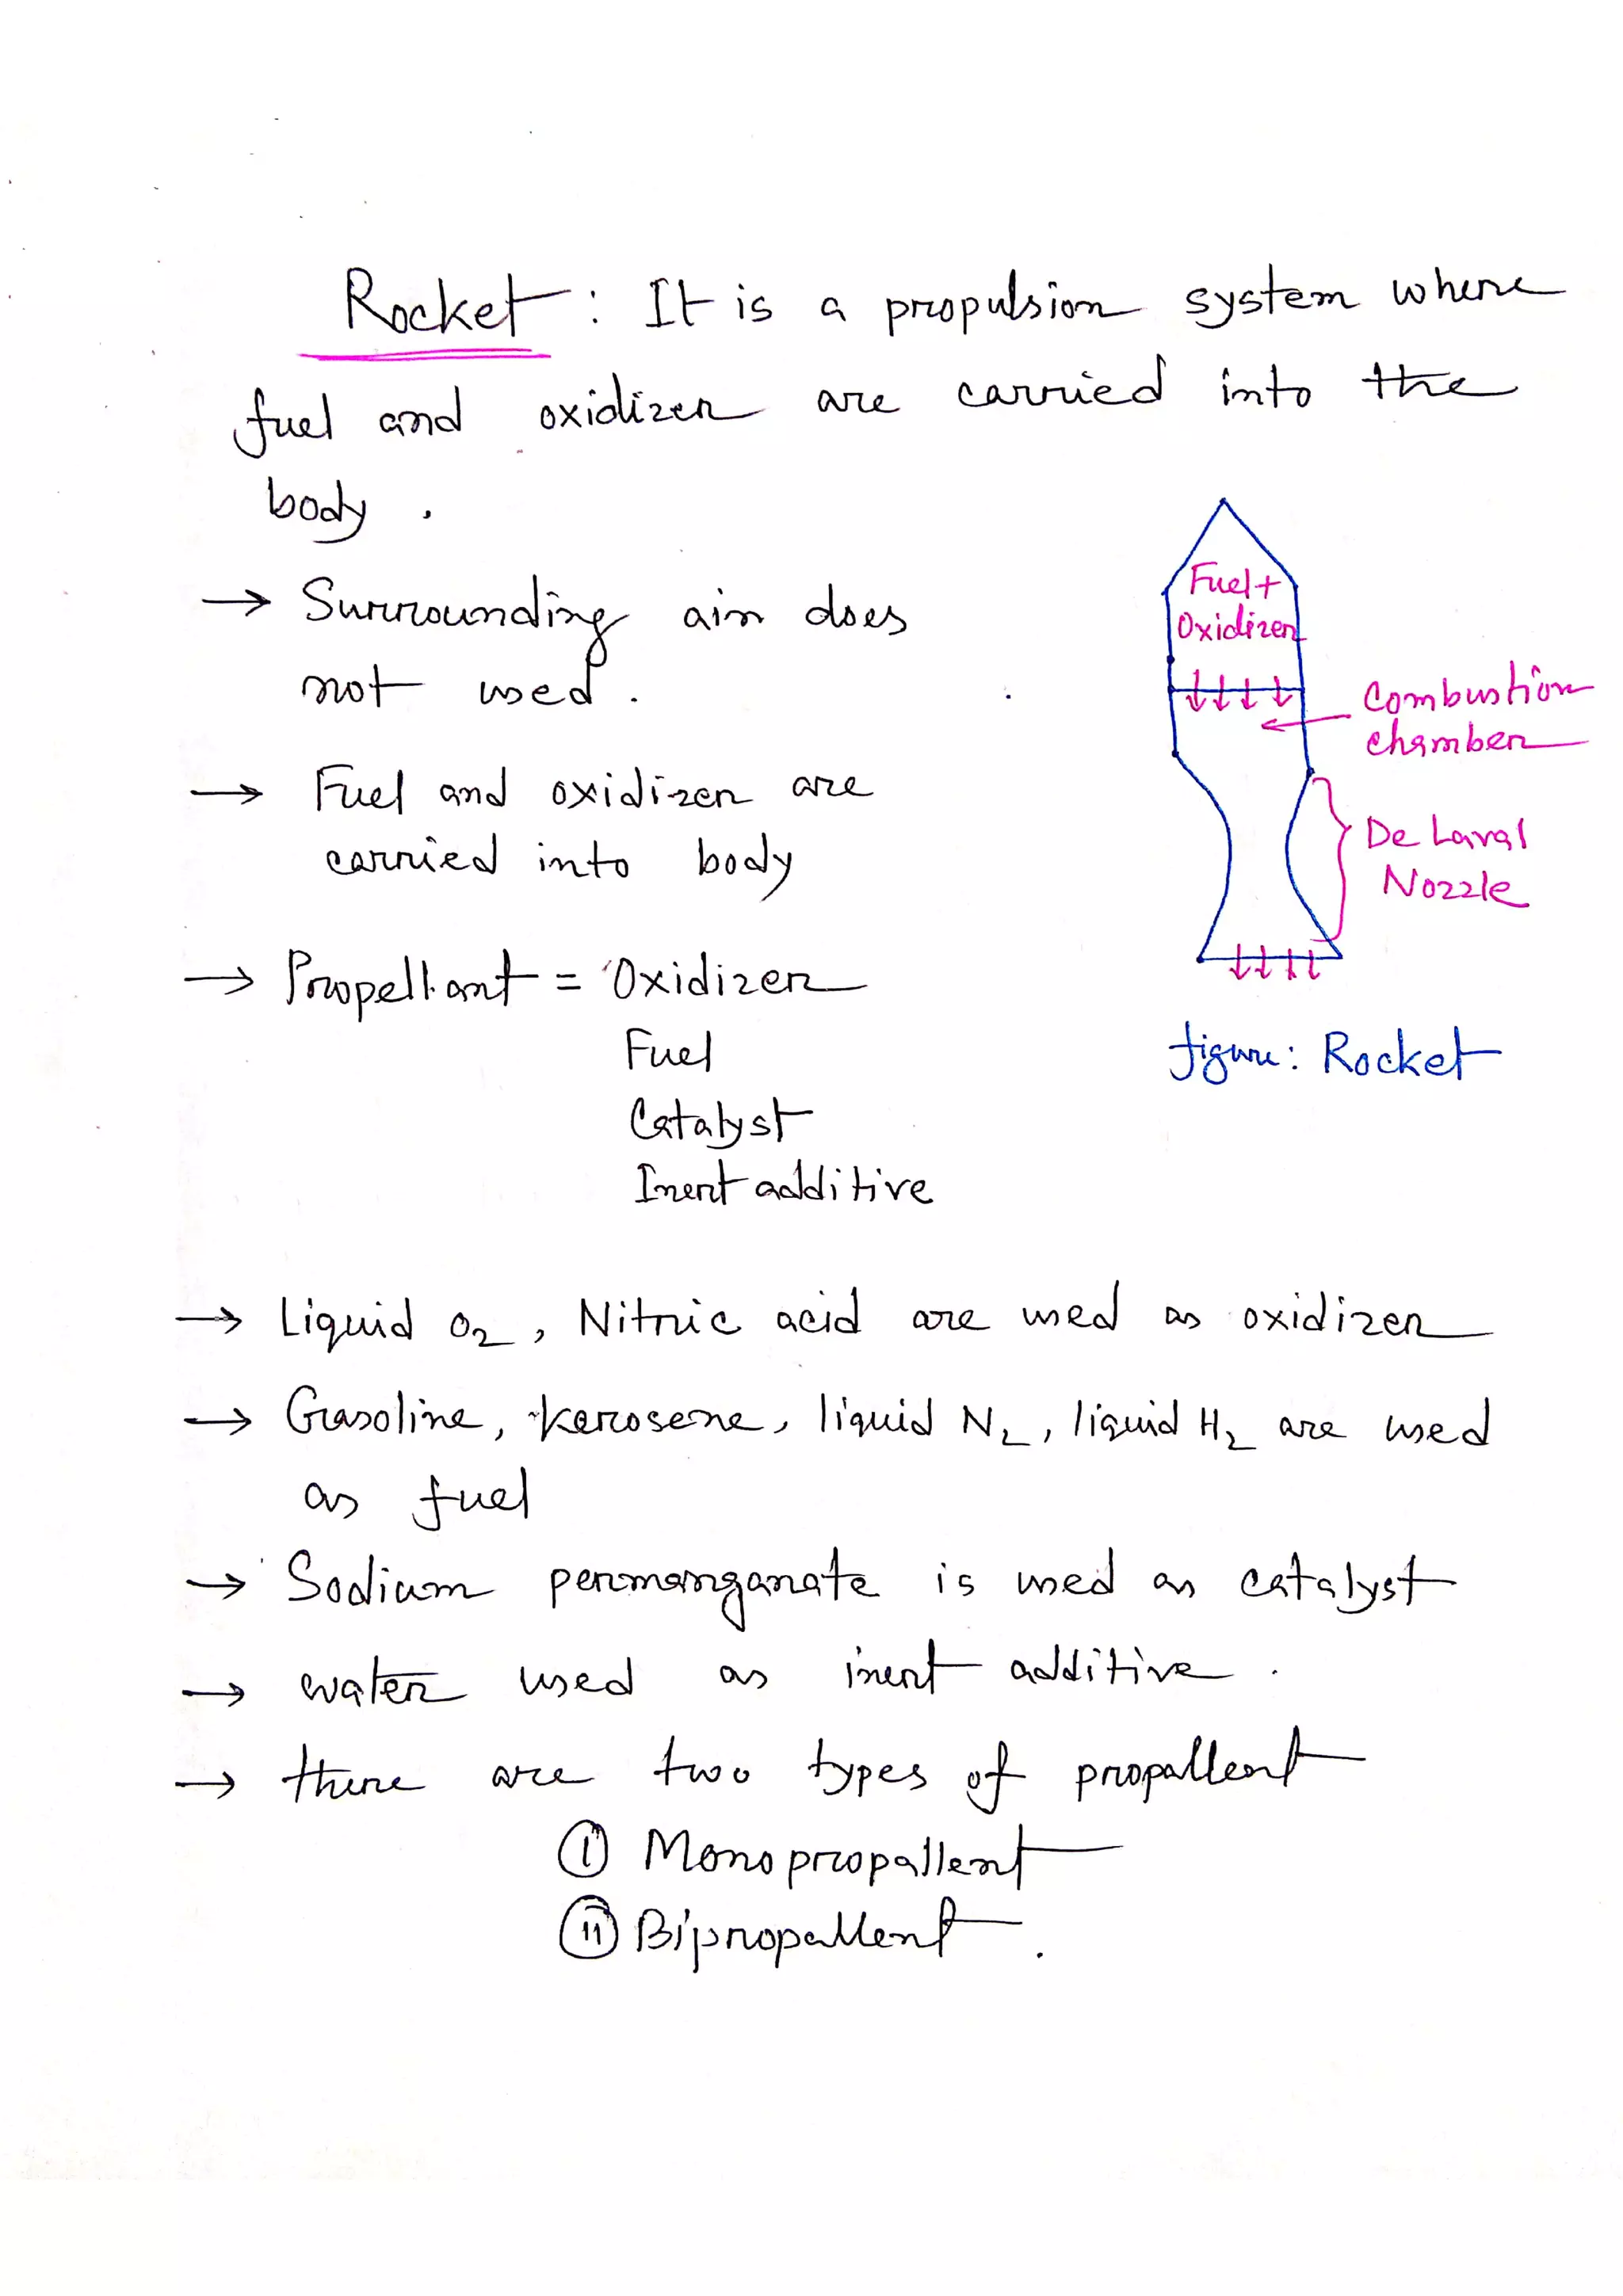 Rocket : It is a propulsion system where
fuel and oxidizer are carried into the
body .
→ Surrounding air does
not used .
→ Fuel and oxidizer are
carried into body
→ Propellant = Oxidizer
Fuel
Catalyst
Inert additive
Fuel +
Oxidizer
Combustion
chamber
De Laval
Nozzle
figure: Rocket
→ Liquid O2 , Nitric acid are used as oxidizer
→ Gasoline, kerosene, liquid N2, liquid H2 are used
as fuel
→ Sodium permanganate is used as catalyst
→ water used as inert additive .
→ there are two types of propallent
(i) Monopropallent
(ii) Bipropallent .